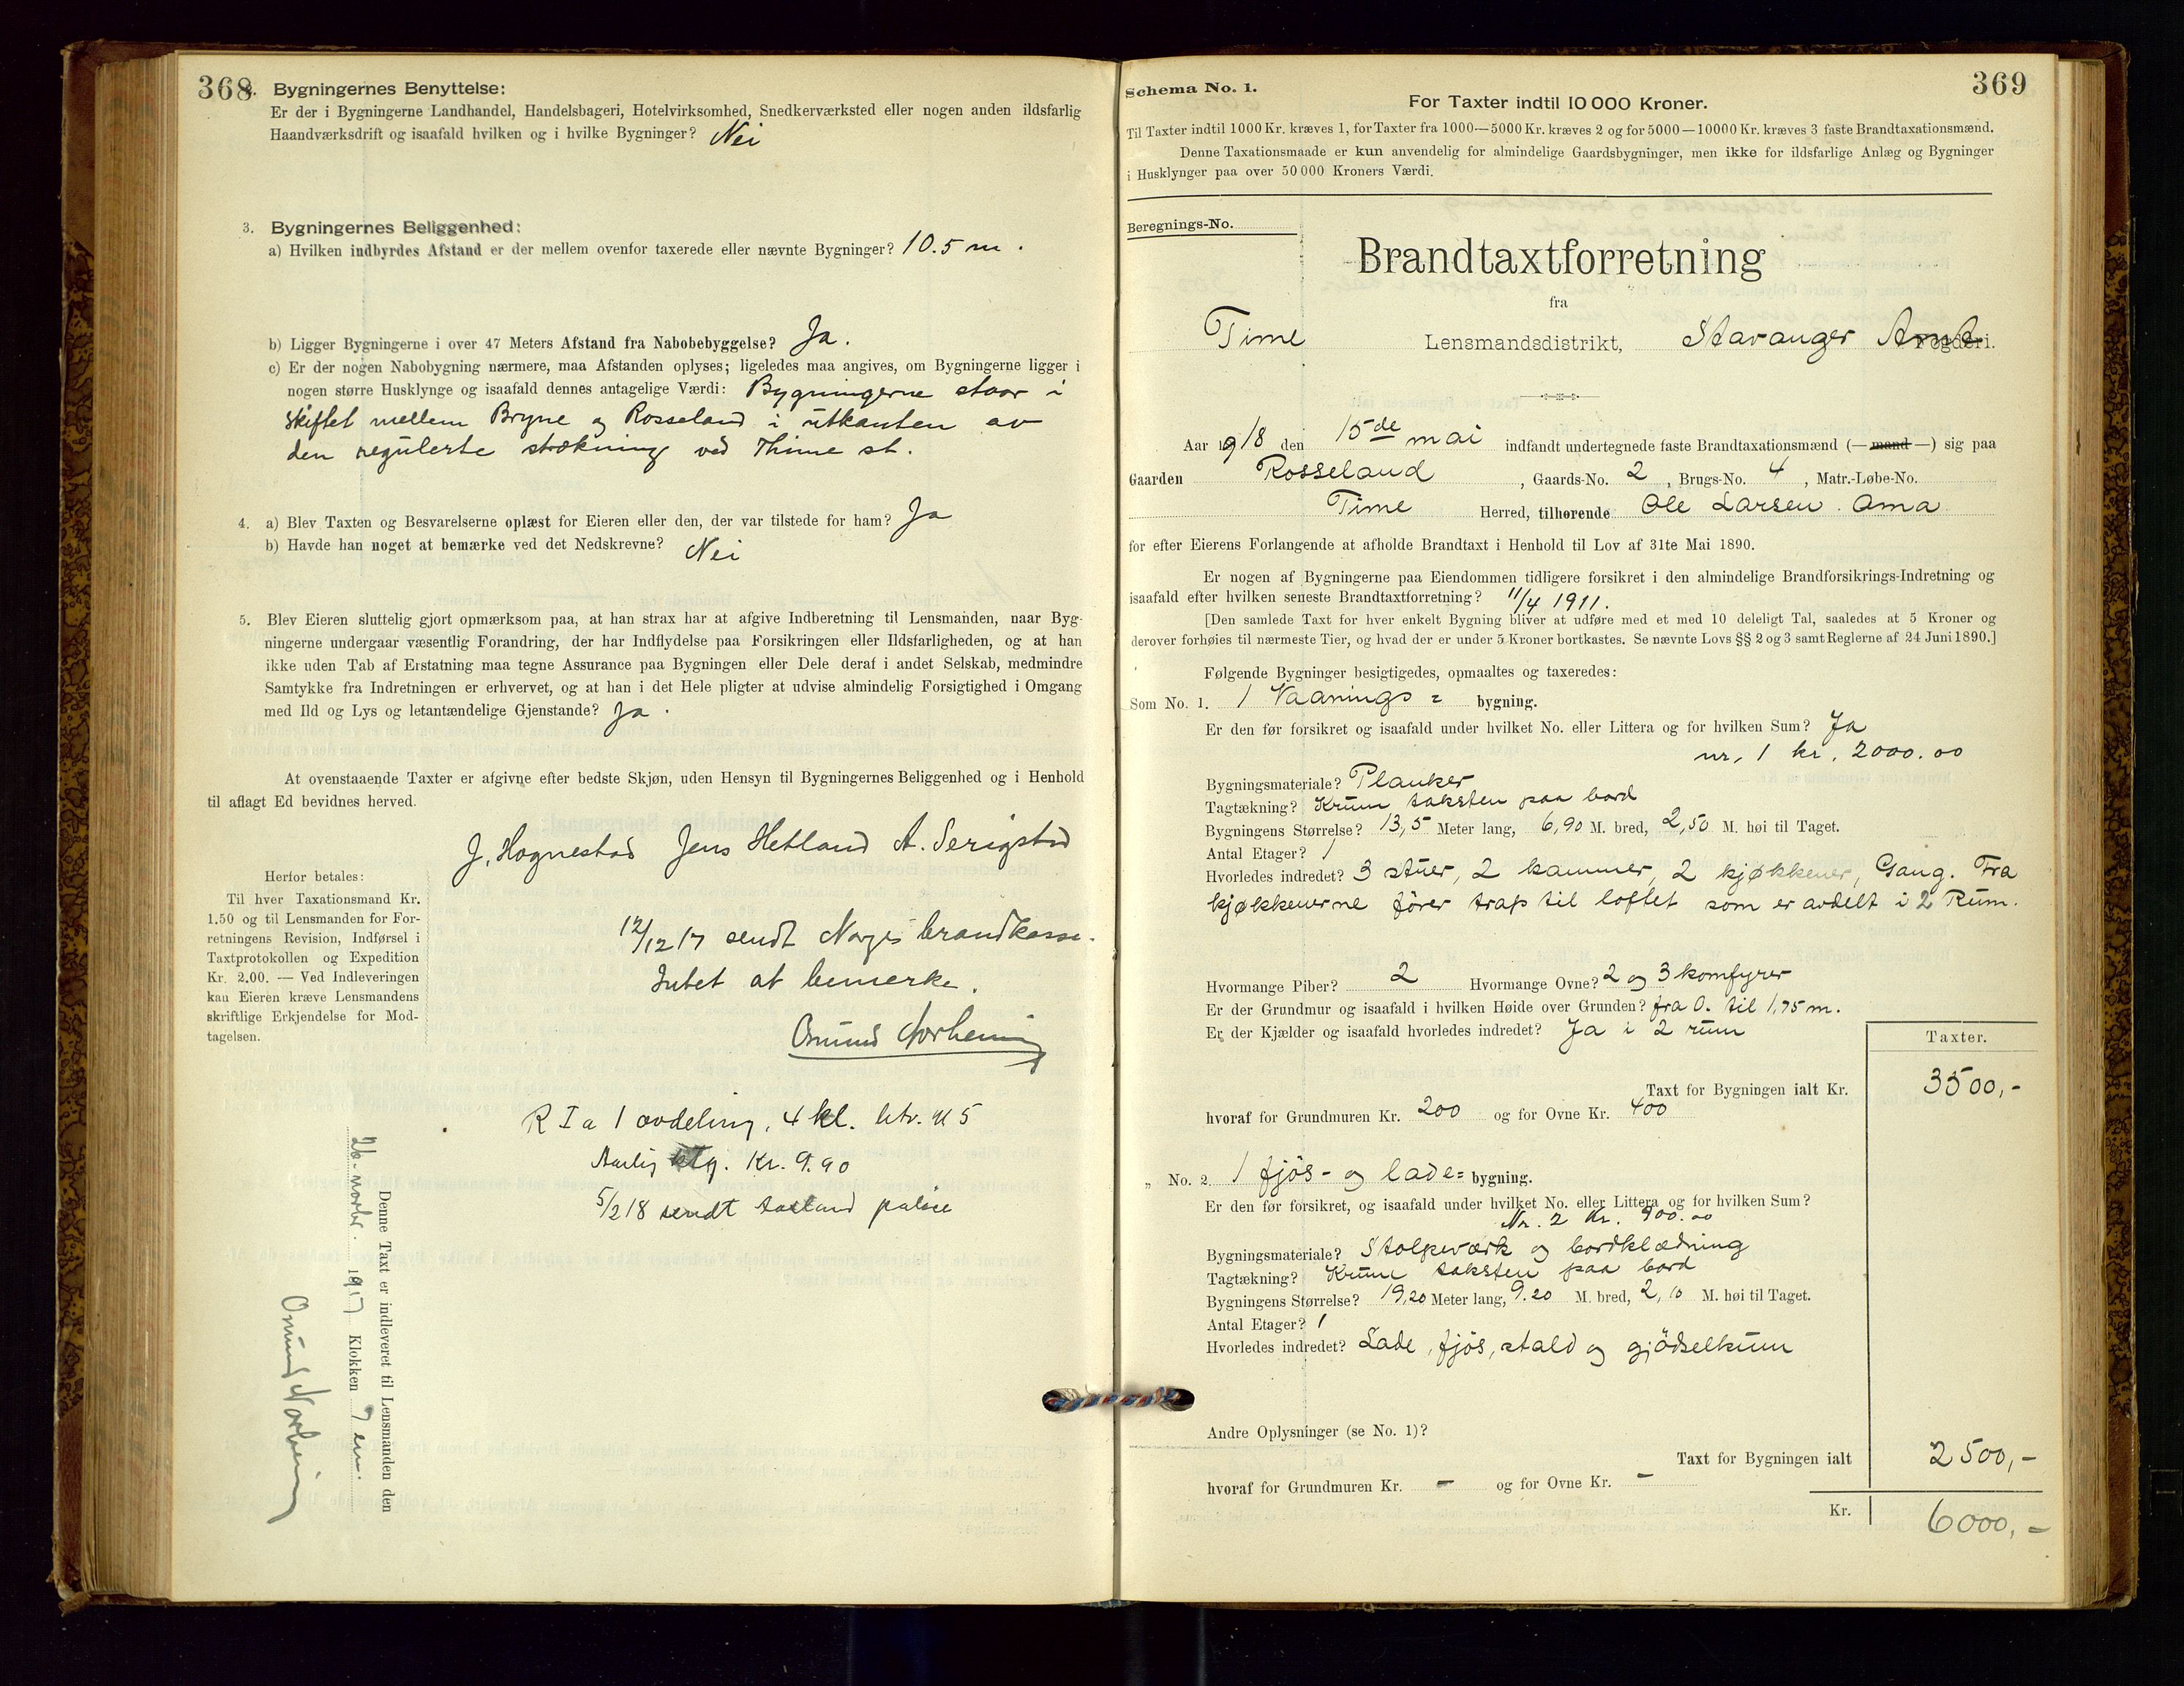 368
2. Bygningernes Benyttelse:
Er der i Bygningerne Landhandel, Handelsbageri, Hotelvirksomhed, Snedkerværksted eller nogen anden ildsfarlig
Haandværksdrift og isaafald hvilken og i hvilke Bygninger? Nei
3. Bygningernes Beliggenhed:
a) Hvilken indbyrdes Afstand er der mellem ovenfor taxerede eller nævnte Bygninger? 10.5 m.
b) Ligger Bygningerne i over 47 Meters Afstand fra Nabobebyggelse? Ja.
c) Er der nogen Nabobygning nærmere, maa Afstanden oplyses; ligeledes maa angives, om Bygningerne ligger i
nogen større Husklynge og isaafald dennes antagelige Værdi: Bygningerne staar i
Skiftet mellem Bryne og Rosseland i utkanten av
den regulerte strækning ved Thime st.
4. a) Blev Taxten og Besvarelserne oplæst for Eieren eller den, der var tilstede for ham? Ja
b) Havde han noget at bemærke ved det Nedskrevne? Nei
5. Blev Eieren sluttelig gjort opmærksom paa, at han strax har at afgive Indberetning til Lensmanden, naar Byg-
ningerne undergaar væsentlig Forandring, der har Indflydelse paa Forsikringen eller Ildsfarligheden, og at han
ikke uden Tab af Erstatning maa tegne Assurance paa Bygningen eller Dele deraf i andet Selskab, medmindre
Samtykke fra Indretningen er erhvervet, og at han i det Hele pligter at udvise almindelig Forsigtighed i Omgang
med Ild og Lys og letantændelige Gjenstande? Ja.
At ovenstaaende Taxter er afgivne efter bedste Skjøn, uden Hensyn til Bygningernes Beliggenhed og i Henhold
til aflagt Ed bevidnes herved.
J. Hognestad Jens Hetland A. Serigstad
Herfor betales:
Til hver Taxationsmand Kr.
1.50 og til Lensmanden for For-
retningens Revision, Indførsel i
Taxtprotokollen og Expedition
Kr. 2.00. — Ved Indleveringen
kan Eieren kræve Lensmandens
skriftlige Erkjendelse for Mod-
tagelsen.
12/12 17 sendt Norges brandkasse.
Intet at bemerke.
Osmund Norheim
R I a 1 avdeling, 4 kl. litr. U 5
Aarlig ktg. Kr. 9.90
5/2 18 sendt polise
Denne Taxt er indleveret til Lensmanden den
26. novbr. 1917 Klokken 7 em.
Osmund Norheim
369
Schema No. 1.
For Taxter indtil 10 000 Kroner.
Til Taxter indtil 1000 Kr. kræves 1, for Taxter fra 1000—5000 Kr. kræves 2 og for 5000—10000 Kr. kræves 3 faste Brandtaxationsmænd.
Denne Taxationsmaade er kun anvendelig for almindelige Gaardsbygninger, men ikke for ildsfarlige Anlæg og Bygninger
i Husklynger paa over 50 000 Kroners Værdi.
Beregnings-No.
Brandtaxtforretning
fra
Time Lensmandsdistrikt, Stavanger Amt Fogderi.
Aar 1918 den 15de mai indfandt undertegnede faste Brandtaxationsmænd (— mand —) sig paa
Gaarden Rosseland, Gaards-No. 2, Brugs-No. 4, Matr.-Løbe-No.
Time Herred, tilhørende Ole Larsen Oma
for efter Eierens Forlangende at afholde Brandtaxt i Henhold til Lov af 31te Mai 1890.
Er nogen af Bygningerne paa Eiendommen tidligere forsikret i den almindelige Brandforsikrings-Indretning og
isaafald efter hvilken seneste Brandtaxtforretning? 11/4 1911.
[Den samlede Taxt for hver enkelt Bygning bliver at udføre med et med 10 deleligt Tal, saaledes at 5 Kroner og
derover forhøies til nærmeste Tier, og hvad der er under 5 Kroner bortkastes. Se nævnte Lovs §§ 2 og 3 samt Reglerne af 24 Juni 1890.]
Følgende Bygninger besigtigedes, opmaaltes og taxeredes:
Som No. 1. 1 Vaanings= bygning.
Er den før forsikret og isaafald under hvilket No. eller Littera og for hvilken Sum? Ja
nr. 1 kr. 2000.00
Bygningsmateriale? Planker
Tagtækning? Krum taksten paa bord
Bygningens Størrelse? 13,5 Meter lang, 6,90 M. bred, 2,50 M. høi til Taget.
Antal Etager? 1
Hvorledes indredet? 3 stuer, 2 kammer, 2 kjøkkener, Gang. Fra
kjøkkenerne fører trap til loftet som er avdelt i 2 Rum.
Hvormange Piber? 2 Hvormange Ovne? 2 og 3 komfyrer
Er der Grundmur og isaafald i hvilken Høide over Grunden? fra 0. til 1,75 m.
Er der Kjælder og isaafald hvorledes indredet? Ja i 2 rum
Taxter.
Taxt for Bygningen ialt Kr. 3500,-
hvoraf for Grundmuren Kr. 200 og for Ovne Kr. 400
„ No. 2. 1 fjös- og lade= bygning.
Er den før forsikret, og isaafald under hvilket No. eller Littera og for hvilken Sum?
Nr. 2 Kr. 900.00
Bygningsmateriale? Stolpeværk og bordklædning
Tagtækning? Krum taksten paa bord
Bygningens Størrelse? 19,20 Meter lang, 9.20 M. bred, 2,10 M. høi til Taget.
Antal Etager? 1
Hvorledes indredet? Lade, fjös, stald og gjödselkum
Andre Oplysninger (se No. 1)?
Taxt for Bygningen ialt 2500,-
hvoraf for Grundmuren Kr. - og for Ovne Kr. -
Kr. 6000,-